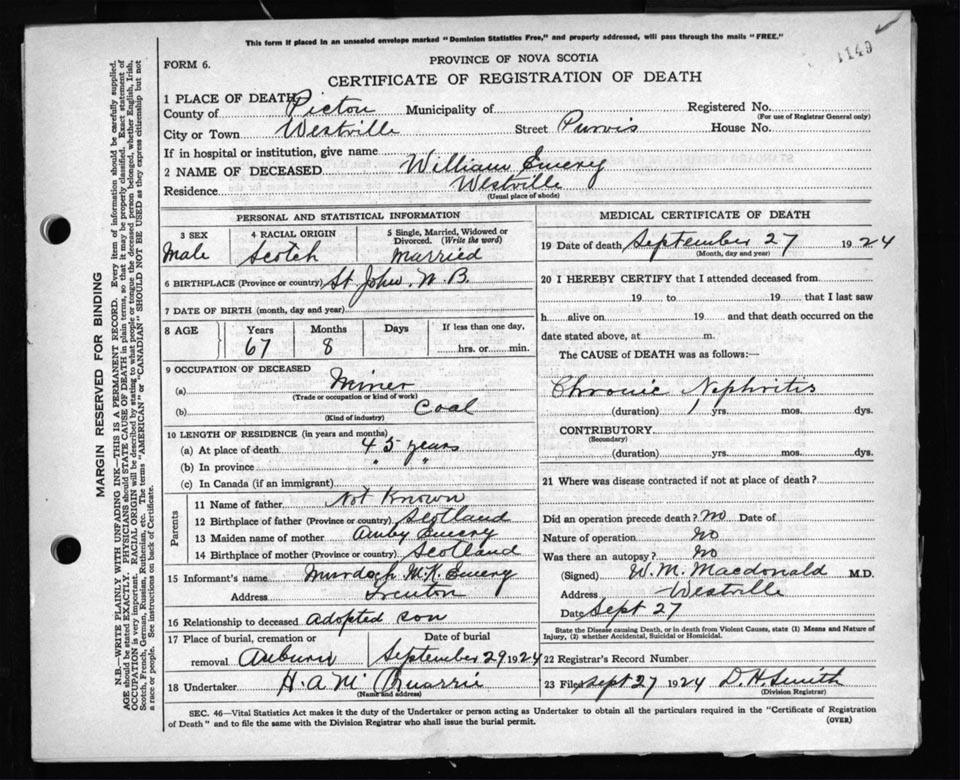 This form if placed in an unsealed envelope marked "Dominion Statistics Free," and properly addressed, will pass through the mails "FREE."
1149
FORM 6.
PROVINCE OF NOVA SCOTIA
CERTIFICATE OF REGISTRATION OF DEATH
1 PLACE OF DEATH
County of Pictou Municipality of Registered No.
(For use of Registrar General only)
City or Town Westville Street Purvis House No.
If in hospital or institution, give name
2 NAME OF DECEASED William Emery
Residence Westville
(Usual place of abode)
PERSONAL AND STATISTICAL INFORMATION
3 SEX 4 RACIAL ORIGIN 5 Single, Married, Widowed or Divorced. (Write the word)
Male Scotch Married
6 BIRTHPLACE (Province or country) St John, N.B.
7 DATE OF BIRTH (month, day and year)
8 AGE Years Months Days If less than one day,
67 8 hrs. or min.
9 OCCUPATION OF DECEASED
(a) Miner
(Trade or occupation or kind of work)
(b) Coal
(Kind of industry)
10 LENGTH OF RESIDENCE (in years and months)
(a) At place of death 45 years
(b) In province " "
(c) In Canada (if an immigrant)
Parents
11 Name of father Not Known
12 Birthplace of father (Province or country) Scotland
13 Maiden name of mother Emery
14 Birthplace of mother (Province or country) Scotland
15 Informant's name Murdoch Mc K. Emery
Address Trenton
16 Relationship to deceased adopted son
17 Place of burial, cremation or removal Auburn
Date of burial
September 29 1924
18 Undertaker H. A. McQuarrie
(Name and address)
MEDICAL CERTIFICATE OF DEATH
19 Date of death September 27 1924
(Month, day and year)
20 I HEREBY CERTIFY that I attended deceased from
19 to 19 that I last saw
h alive on 19 and that death occurred on the
date stated above, at m.
The CAUSE of DEATH was as follows:—
Chronic Nephritis
(duration) 1 yrs. mos. dys.
CONTRIBUTORY
(Secondary)
(duration) yrs. mos. dys.
21 Where was disease contracted if not at place of death?
Did an operation precede death? no Date of
Nature of operation no
Was there an autopsy? no
(Signed) W. M. Macdonald M.D.
Address Westville
Date Sept 27
State the Disease causing Death, or in death from Violent Causes, state (1) Means and Nature of
Injury, (2) whether Accidental, Suicidal or Homicidal.
22 Registrar's Record Number
23 Filed Sept 27 1924 D. H. Smith
(Division Registrar)
SEC. 46—Vital Statistics Act makes it the duty of the Undertaker or person acting as Undertaker to obtain all the particulars required in the "Certificate of Registration
of Death" and to file the same with the Division Registrar who shall issue the burial permit.
(OVER)
MARGIN RESERVED FOR BINDING
N.B.—WRITE PLAINLY WITH UNFADING INK—THIS IS A PERMANENT RECORD. Every item of information should be carefully supplied.
AGE should be stated EXACTLY. PHYSICIANS should STATE CAUSE OF DEATH in plain terms, so that it may be properly classified. Exact statement of
OCCUPATION is very important. RACIAL ORIGIN will be described by stating to what people or tongue the deceased person belonged, whether English, Irish,
Scotch, French, German, Russian, Ruthenian, etc. The terms "AMERICAN" or "CANADIAN" SHOULD NOT BE USED as they express citizenship but not
a race or people. See instructions on back of Certificate.